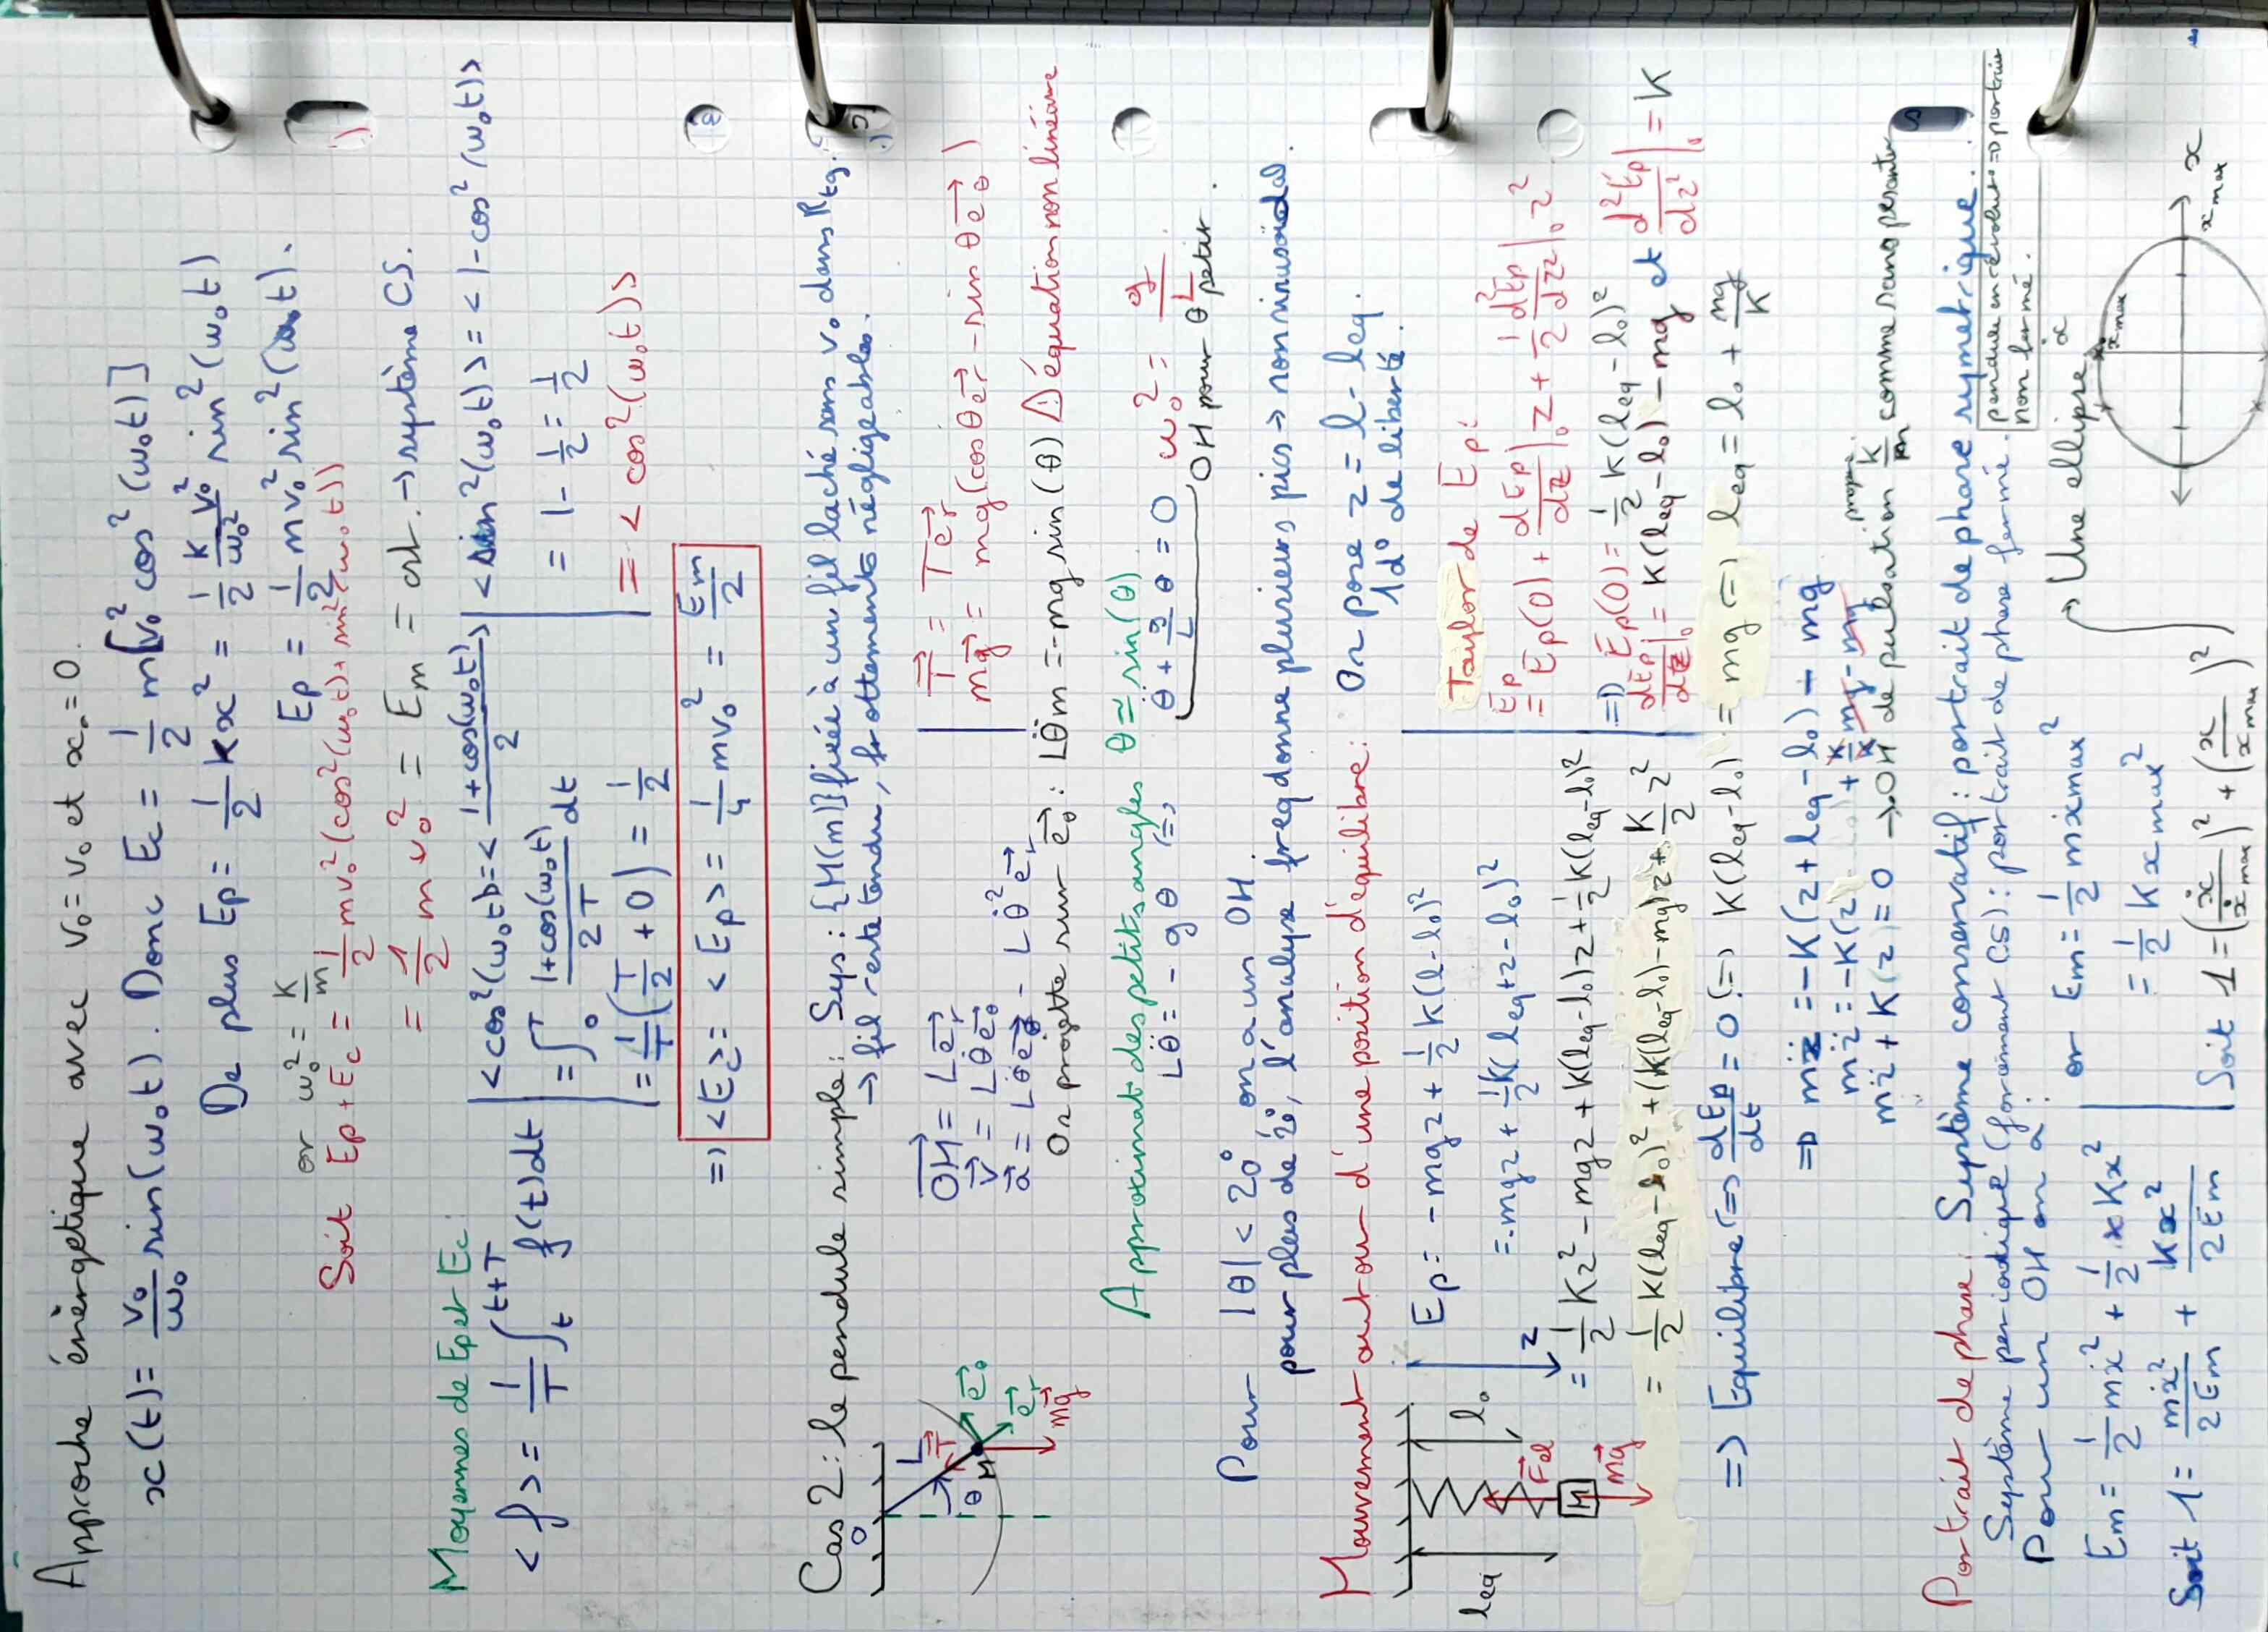 Approche énérgetique avec v₀ = v₀ et x₀ = 0.
x(t) = v₀/ω₀ sin(ω₀t). Donc Ec = 1/2 m[v₀² cos²(ω₀t)]
De plus Ep = 1/2 Kx² = 1/2 K v₀²/ω₀² sin²(ω₀t)
or ω₀² = K/m
Ep = 1/2 mv₀² sin²(ω₀t).
Soit Ep + Ec = 1/2 mv₀²(cos²(ω₀t) + sin²(ω₀t))
= 1/2 m v₀² = Em = cst. → système CS.
Moyennes de Ep et Ec:
<f> = 1/T ∫ₜᵗ⁺ᵀ f(t)dt
<cos²(ω₀t)> = <(1+cos(ω₀t))/2>
= ∫₀ᵀ (1+cos(ω₀t))/2T dt
= 1/T (T/2 + 0) = 1/2
<sin²(ω₀t)> = <1-cos²(ω₀t)>
= 1 - 1/2 = 1/2
= <cos²(ω₀t)>
=> <Ec> = <Ep> = 1/4 mv₀² = Em/2
Cas 2: le pendule simple: Sys: {M(m)} fixée à un fil laché sans v₀ dans Rtg.
→ fil reste tendu, frottements négligeables.
O L T θ M e_θ e_r mg
OM = L e_r
v = Lθ̇ e_θ
a = Lθ̈ e_θ - Lθ̇² e_r
T = T e_r
mg = mg(cosθ e_r - sinθ e_θ)
On projette sur e_θ: Lθ̈m = -mg sin(θ) ⚠ équation non linéaire
Approximat des petits angles θ ≃ sin(θ)
Lθ̈ = -gθ (=) θ̈ + g/L θ = 0 ω₀² = g/L.
OH pour θ petit.
Pour |θ| < 20° on a un OH.
pour plus de 20°, l'analyse freq donne plusieurs pics → non sinusoïdal.
Mouvement autour d'une position d'équilibre: On pose z = l - leq.
1d° de liberté.
leq l₀ Fel M mg z
Ep = -mgz + 1/2 K(l-l₀)²
= -mgz + 1/2 K(leq+z-l₀)²
= 1/2 Kz² - mgz + K(leq-l₀)z + 1/2 K(leq-l₀)²
= 1/2 K(leq-l₀)² + (K(leq-l₀)-mg)z + K/2 z²
Taylor de Ep:
Ep = Ep(0) + dEp/dz|₀ z + 1/2 d²Ep/dz²|₀ z²
=> Ep(0) = 1/2 K(leq-l₀)²
dEp/dz|₀ = K(leq-l₀)-mg et d²Ep/dz²|₀ = K
=> Equilibre (=> dEp/dt = 0 (=) K(leq-l₀) = mg (=) leq = l₀ + mg/K
=> mz̈ = -K(z+leq-l₀) + mg
mz̈ = -K(z) + K/K mg - mg
mz̈ + K(z) = 0 → OH de pulsation propre K/m comme sans pesanteur
Portrait de phase: Système conservatif: portrait de phase symetrique.
Système periodique (forcément CS): portrait de phase fermé.
pendule en révolut => portrait non fermé.
Pour un OH on a:
Em = 1/2 mẋ² + 1/2 × Kx²
Soit 1 = mẋ²/2Em + Kx²/2Em
or Em = 1/2 mẋmax²
= 1/2 Kxmax²
Soit 1 = (ẋ/ẋmax)² + (x/xmax)²
→ Une ellipse
ẋ ẋmax x xmax